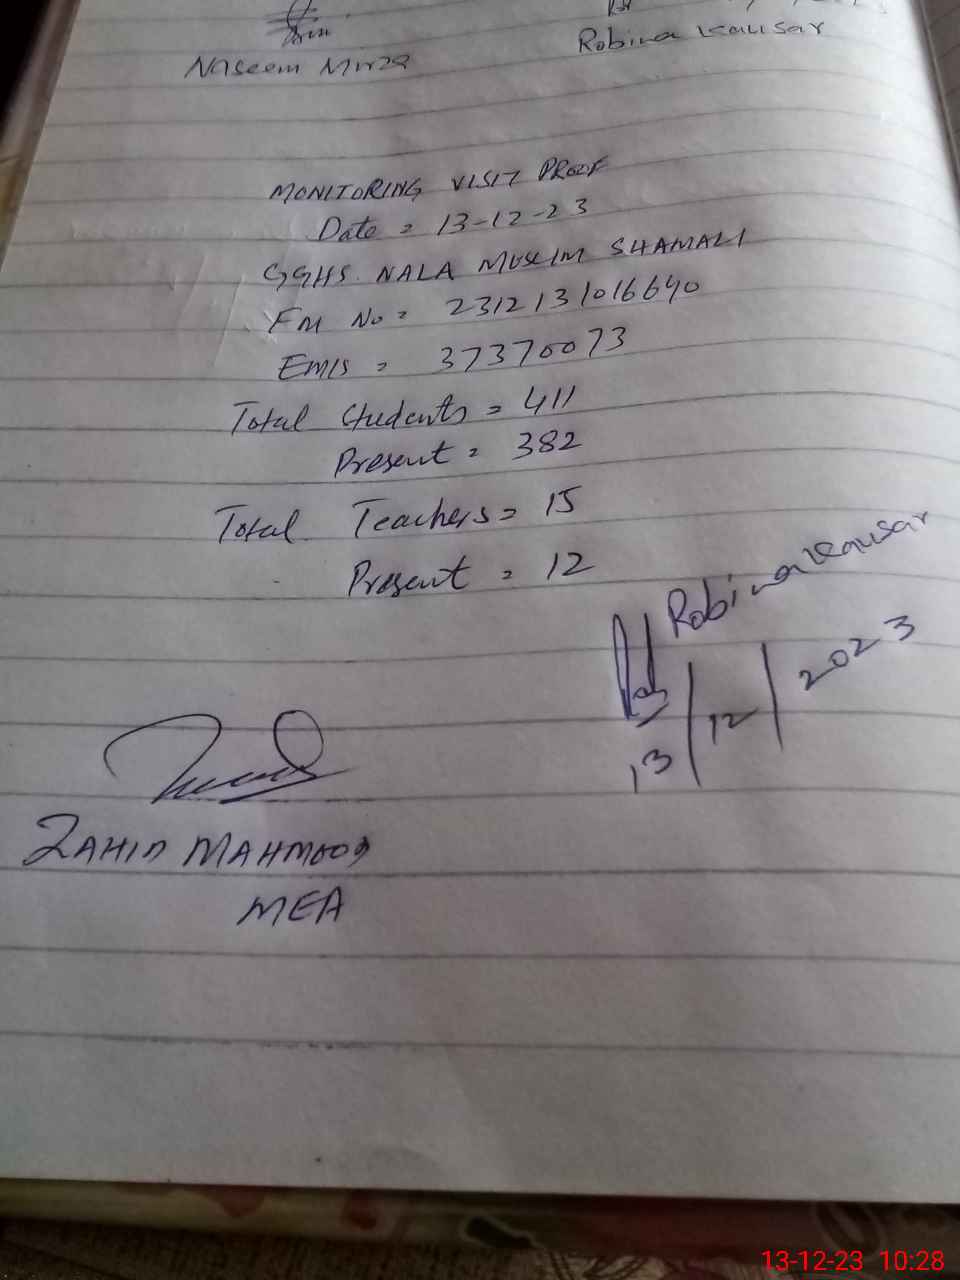 Naseem Mirza
Robina Kausar
MONITORING VISIT PROOF
Date = 13-12-23
GGHS. NALA MUSLIM SHAMALI
FM No = 2312131016640
EMIS = 37370073
Total Students = 411
Present = 382
Total Teachers = 15
Present = 12
Robina Kausar
13/12/2023
ZAHID MAHMOOD
MEA
13-12-23 10:28